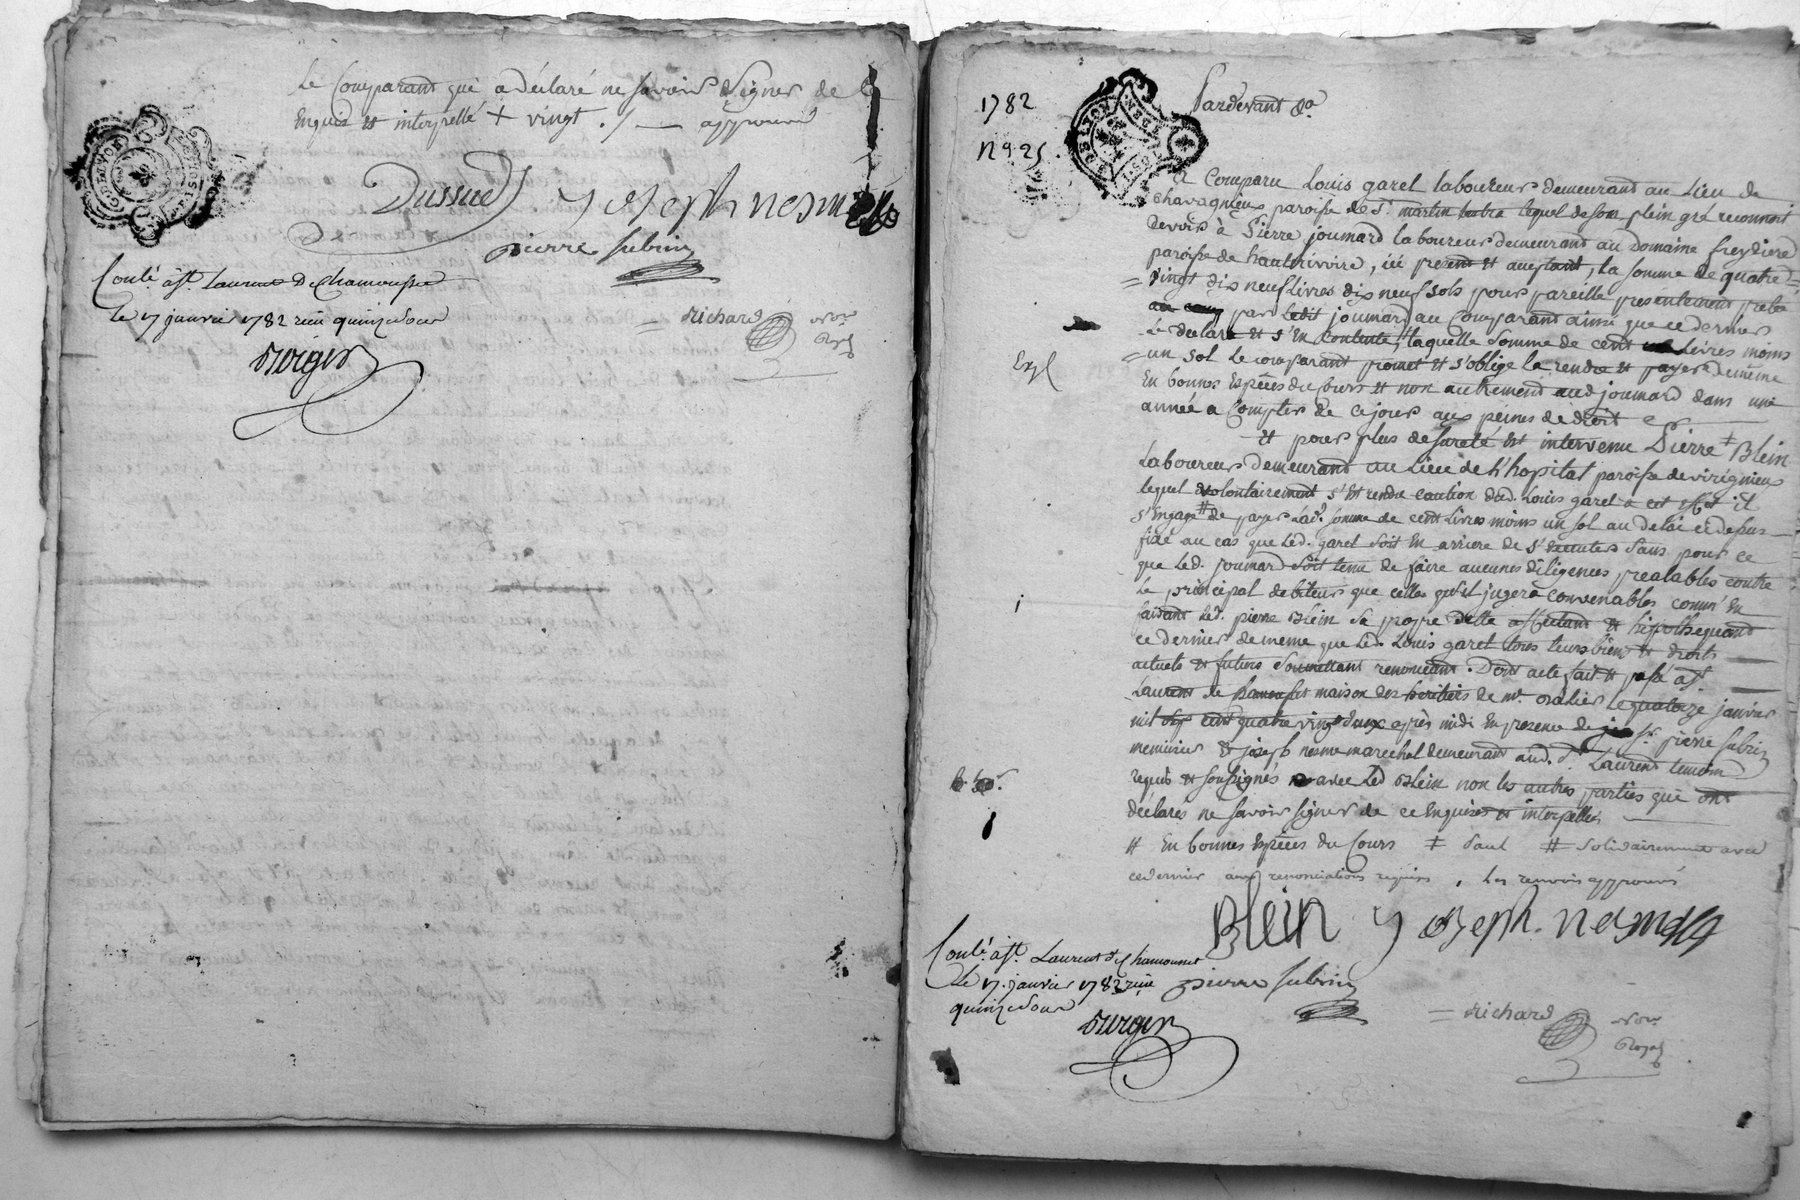 Le Comparant qui a déclaré ne savoir Signer de ce
Enquis et interpellé + vingt ./ — approuvé
Dussud Joseph nesme
pierre subrin
Conlé. à St. Laurent De Chamousset
Le 17 janvier 1782 reçu quinze sous
= Richard Nore
Royal
Duigier
1782
N 9. 25
Pardevant &a
A Comparu Louis garel laboureur demeurant au Lieu de
chavagnieux paroisse de St. martin lequel de son plein gré reconnoit
devoir à Pierre joumard laboureur demeurant au Domaine freydiere
paroisse de hauterivoire, ici present et acceptant, la somme de quatre =
= vingt dix neuf livres dix neuf sols pour pareille presentement preté
par ledit joumard au Comparant ainsi que ce dernier
Le declare et s'En Contente, laquelle Somme de cent Livres moins
Expl
= un sol Le comparant promet et s'oblige la rendre et payer de même
En bonnes Espèces du cours et non autrement aud. joumard dans une
année a Compter de ce jour aux peines de droit
et pour plus de sureté est intervenu Pierre ‡ Blein
Laboureur demeurant au Lieu de L'hopital paroisse de virignieux
lequel volontairement s'est rendu caution dud. Louis garel à cet effet il
s'engage # de payer lad. somme de cent Livres moins un sol au delai ci depus
fixé au cas que Led. garel soit En arriere de s'executer Sans pour ce
que Led. joumard soit tenu de faire aucunes diligences prealables contre
Le principal debiteur que celles qu'il jugera convenables comm'En
faisant Led. pierre Blein sa propre dette affectant et hipothequant
ce dernier de meme que Led. Louis garel tous leurs biens et droits
actuels et futurs Soumettant renonceant. Dont acte fait et passé à St.
Laurent de Chamousset maison des heritiers de mr. oralier le quatorze janvier
mil sept cent quatre vingt deux après midi En presence de sr. pierre subrin
menuisier et joseph nesme marechal demeurant aud. St. Laurent temoins
requis et soussignés avec Led Blein non les autres parties qui ont
déclarés ne savoir signer de ce Enquises et interpellés
# En bonnes Espèces du Cours ‡ Paul # solidairement avec
ce dernier aux renonciations requises, Les renvois approuvés
Blein Joseph. nesme
Conlé. à St. Laurent de Chamousset
Le 17. janvier 1782 reçu pierre subrin
quinze sous
= Richard Nore
Royal
Duigier